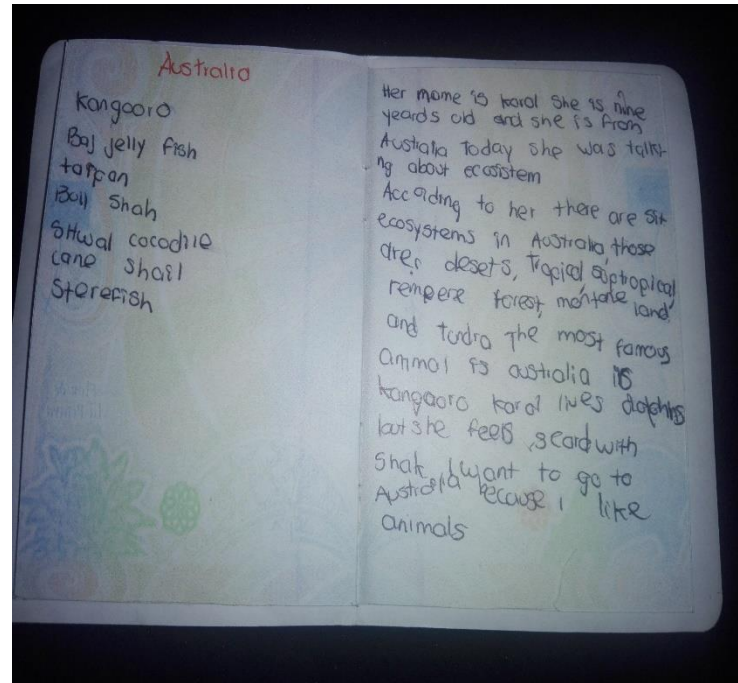 Australia
Kangooro
Baj jelly fish
taipan
Bull Shah
Sltwal cocodrie
cane shail
Sterefish
Her mame is karol She is nine
yeards old and she is from
Australia Today she was talky-
ng about ecosistem
According to her there are six
ecosystems in Australia, those
are, desets, Tropical, suptropical
rempere forest, montane land
and tundra The most famous
ammal is australia is
kangaoro karol lives dolphins
but she feels scard with
Shak I want to go to
Australia because i like
animals